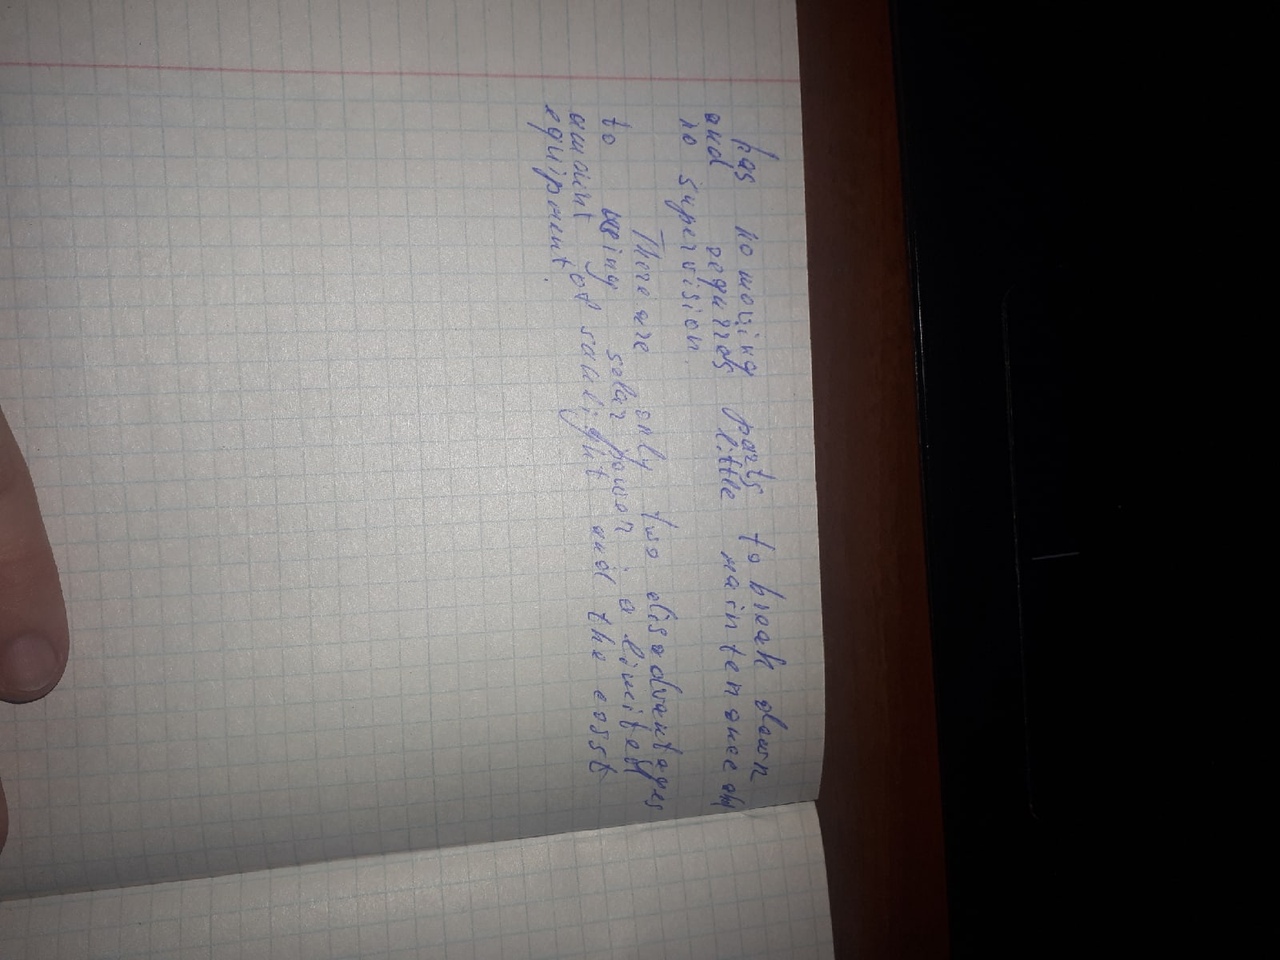 has no moving parts to break down
and requires little maintenance and
no supervision.
There are only two disadvantages
to using solar power: a limited
amount of sunlight and the cosst
equipment.